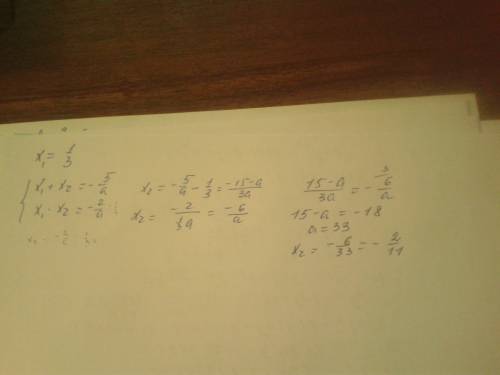 x₁ = 1/3
{ x₁ + x₂ = -5/a
x₁ · x₂ = -2/a
x₂ = -5/a - 1/3 = (-15-a)/3a
x₂ = -2/(1/3 a) = -6/a
(15-a)/3a = -6/a
15-a = -18
a = 33
x₂ = -6/33 = -2/11